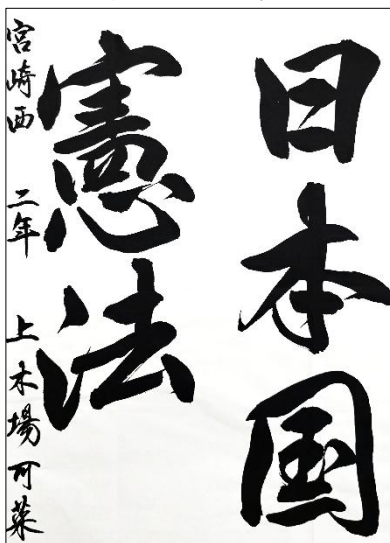 日本国
憲法
宮崎西 二年 上木場可菜